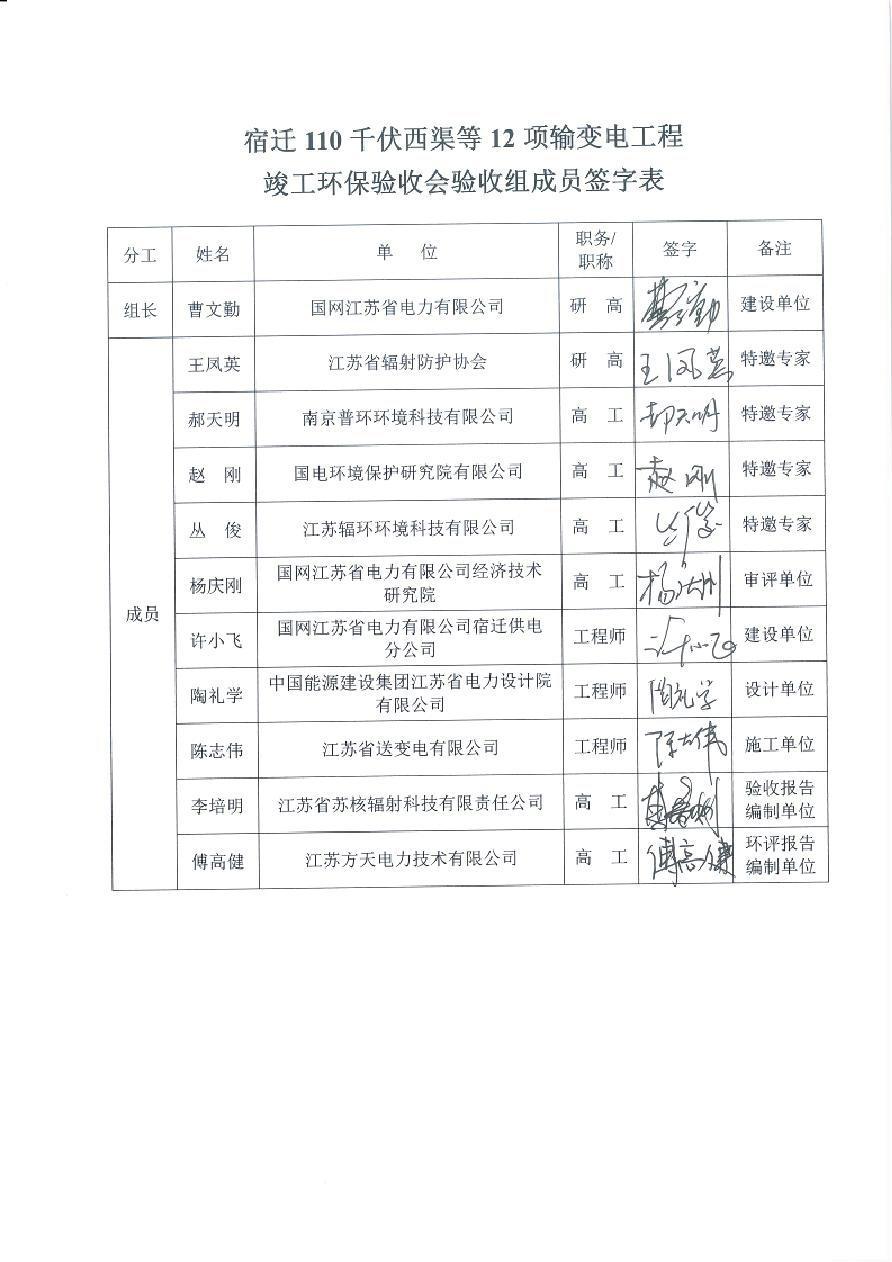 宿迁 110 千伏西渠等 12 项输变电工程
竣工环保验收会验收组成员签字表
分工 姓名 单 位 职务/ 签字 备注
职称
组长 曹文勤 国网江苏省电力有限公司 研 高 曹文勤 建设单位
王凤英 江苏省辐射防护协会 研 高 王凤英 特邀专家
郝天明 南京普环环境科技有限公司 高 工 郝天明 特邀专家
赵 刚 国电环境保护研究院有限公司 高 工 赵刚 特邀专家
丛 俊 江苏辐环环境科技有限公司 高 工 丛俊 特邀专家
成员
杨庆刚 国网江苏省电力有限公司经济技术 高 工 杨庆刚 审评单位
研究院
许小飞 国网江苏省电力有限公司宿迁供电 工程师 许小飞 建设单位
分公司
陶礼学 中国能源建设集团江苏省电力设计院 工程师 陶礼学 设计单位
有限公司
陈志伟 江苏省送变电有限公司 工程师 陈志伟 施工单位
李培明 江苏省苏核辐射科技有限责任公司 高 工 验收报告
编制单位
傅高健 江苏方天电力技术有限公司 高 工 傅高健 环评报告
编制单位